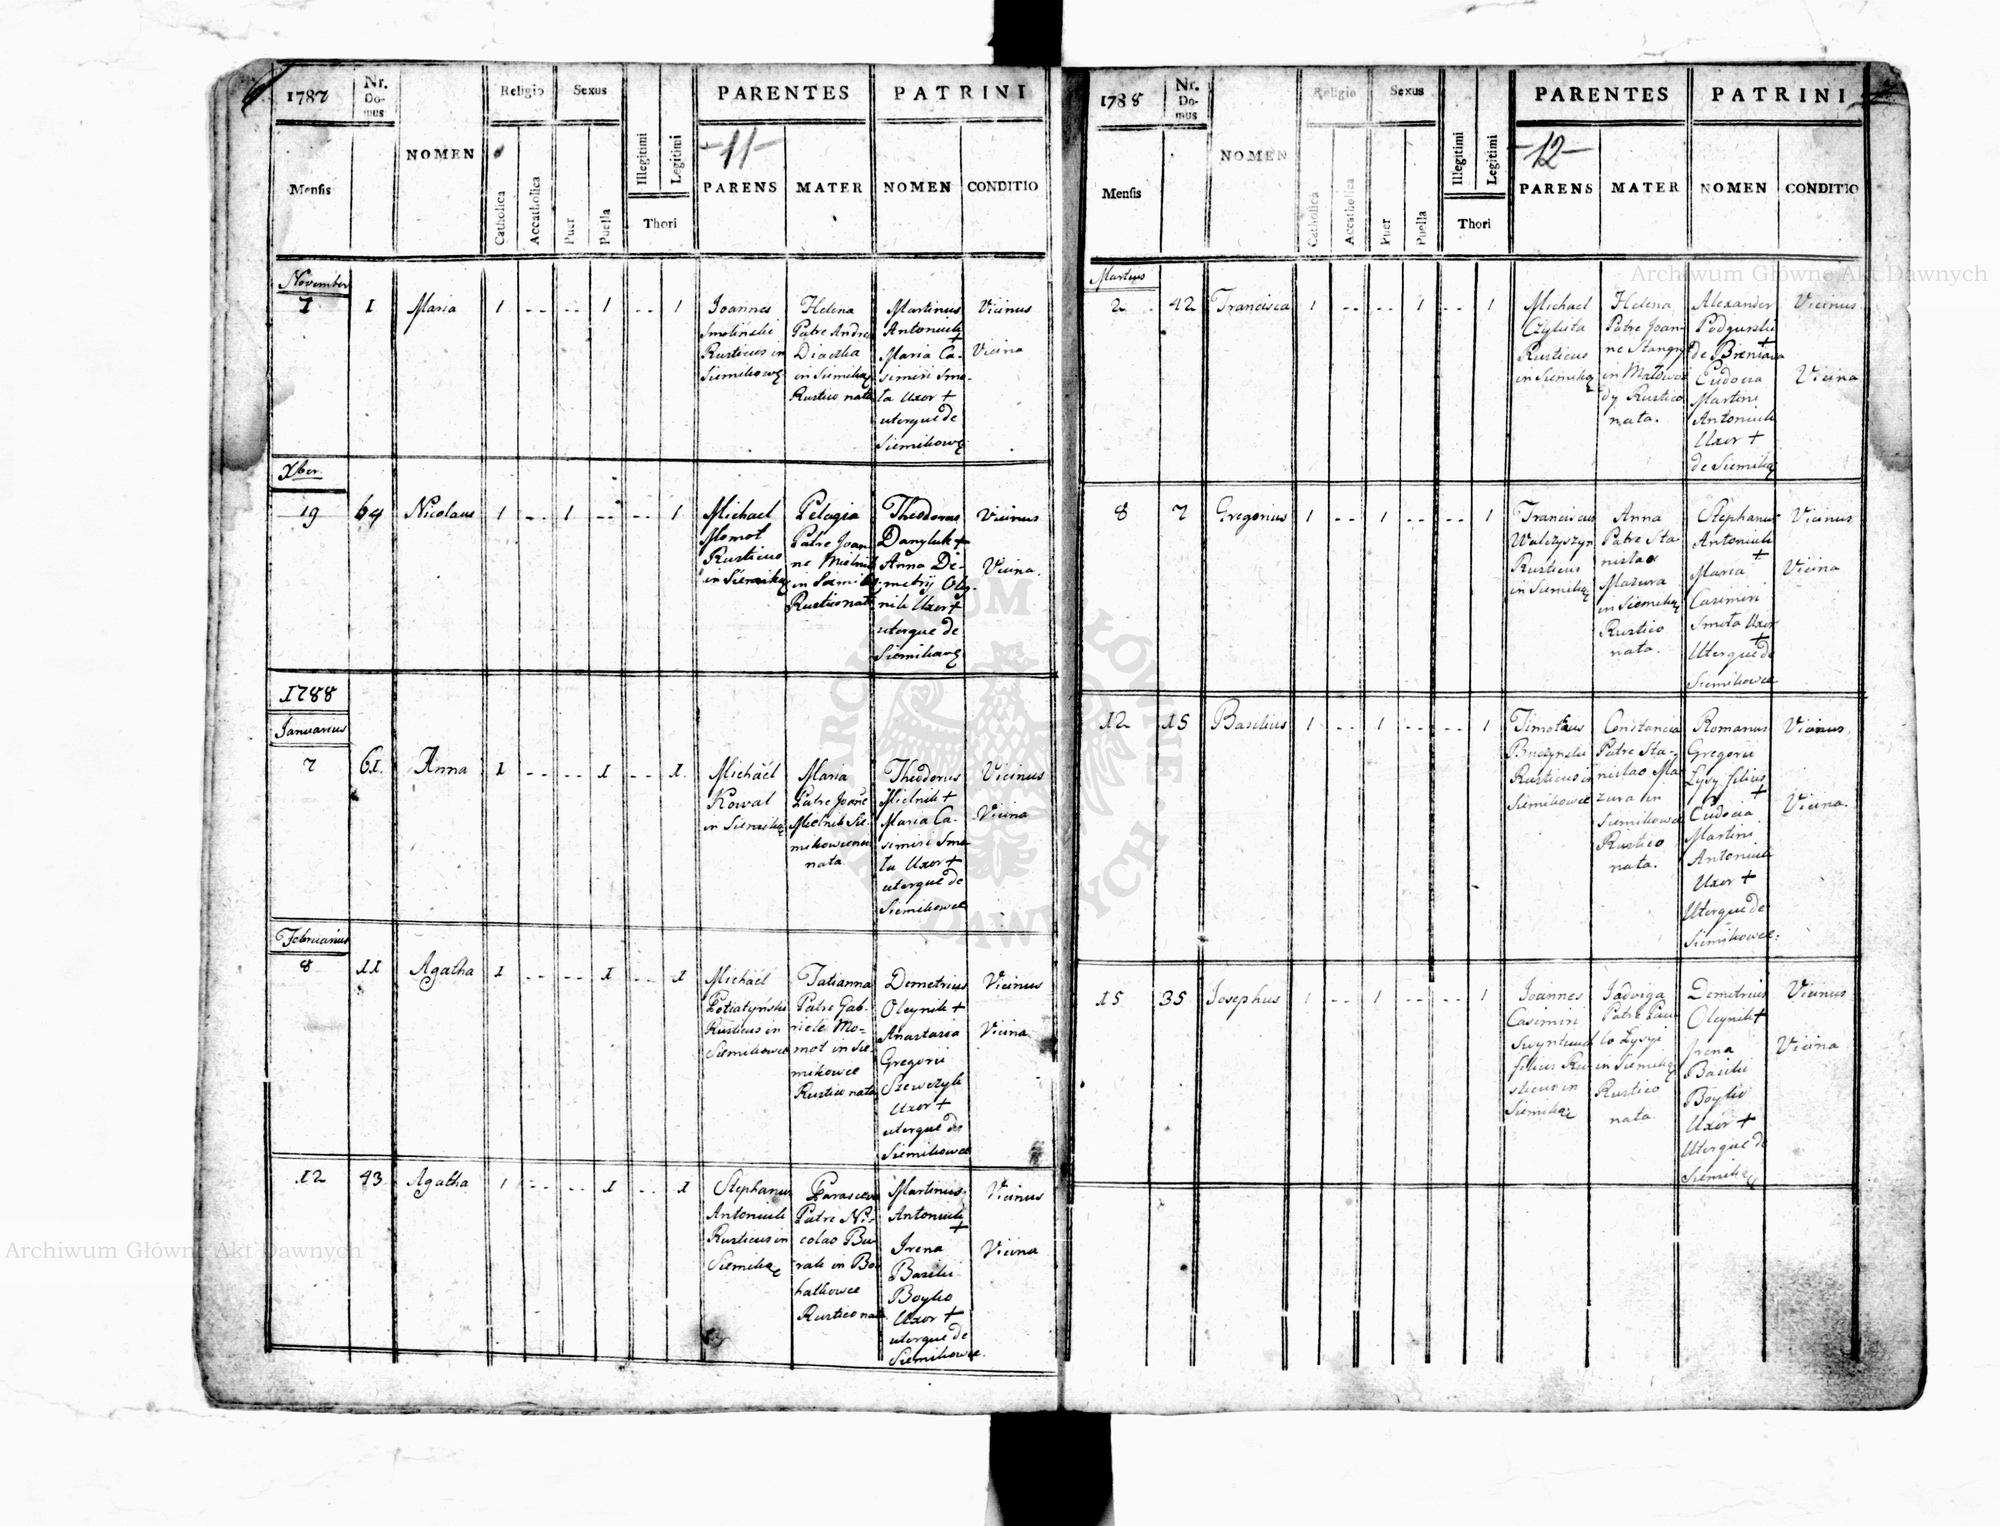 1787
Nr. Domus
Mensis
NOMEN
Religio
Catholica
Accatholica
Sexus
Puer
Puella
Illegitimi
Legitimi
Thori
PARENTES
-11-
PARENS
MATER
PATRINI
NOMEN
CONDITIO
November
7
1
Maria
1 -- -- 1 -- 1
Joannes
Rusticus in
Siemikowę
Helena
Patre Andrea
in Siemikę
Rustico nata
Martinus
Antoniuk
+
Maria Ca-
simiri Smo-
la Uxor +
uterque de
Siemikowę
Vicinus
Vicina
Xber.
19
64
Nicolaus
1 -- 1 -- -- 1
Michael
Momot
Rusticus
in Siemikę
Pelagia
Patre Joan-
ne Mielnik
in Siemikę
Rustico nata
Theodorus
Danyluk +
Anna De-
metrij Oley-
nik Uxor +
uterque de
Siemikowę
Vicinus
Vicina.
1788
Januarius
7
61.
Anna
1 -- -- 1 -- 1.
Michaël
Kowal
in Siemikę
Maria
Patre Joane
Mielnik Sie-
mikowcensi
nata
Theodorus
Mielnik +
Maria Ca-
simiri Smo-
la Uxor +
uterque de
Siemikowce
Vicinus
Vicina
Februarius
8
11
Agatha
1 -- -- 1 -- 1
Michaël
Rusticus in
Siemikowce
Tatianna
Patre Gab-
riele Mo-
mot in Sie-
mikowce
Rustico nata
Demetrius
Oleynik +
Anastasia
Gregorii
Szewczyk
Uxor +
uterque de
Siemikowce
Vicinus
Vicina
12
43
Agatha
1 -- -- 1 -- 1
Stephanus
Antoniuk
Rusticus in
Siemikę
Parasceva
Patre Ni-
colao Bu-
rak in Bo-
hatkowce
Rustico nata
Martinus
Antoniuk
+
Irena
Basilii
Boyko
Uxor +
uterque de
Siemikowce.
Vicinus
Vicina
1788
Nr. Domus
Mensis
NOMEN
Religio
Catholica
Accatholica
Sexus
Puer
Puella
Illegitimi
Legitimi
Thori
PARENTES
-12-
PARENS
MATER
PATRINI
NOMEN
CONDITIO
Martius
2
42
Francisca
1 -- -- 1 -- 1
Michael
Rusticus
in Siemikę
Helena
Patre Joan-
ne
in
Rustico
nata.
Alexander
Podgurski
+
de
Eudocia
Martini
Antoniuk
Uxor +
de Siemikę
Vicinus
Vicina
8
7
Gregorius
1 -- 1 -- -- 1
Franciscus
Rusticus
in Siemikę
Anna
Patre Sta-
nislao
Mazura
in Siemikę
Rustico
nata.
Stephanus
Antoniuk
+
Maria
Casimiri
Smola Uxor
+
Uterque de
Siemikowce
Vicinus
Vicina
12
15
Basilius
1 -- 1 -- -- 1
Timotheus
Buczynski
Rusticus in
Siemikowce
Constancia
Patre Sta-
nislao Ma-
zura in
Siemikowce
Rustico
nata.
Romanus
Gregorii
Łysy filius
+
Eudocia
Martini
Antoniuk
Uxor +
Uterque de
Siemikowce.
Vicinus
Vicina.
15
35
Josephus
1 -- 1 -- -- 1
Joannes
Casimiri
filius Ru-
sticus in
Siemikę
Jadviga
Patre Pau-
lo Łysyi
in Siemikę
Rustico
nata.
Demetrius
Oleynik +
Irena
Basilii
Boyko
Uxor +
Uterque de
Siemikę
Vicinus
Vicina
Archiwum Główne Akt Dawnych
Archiwum Główne Akt Dawnych
ARCHIWUM GŁÓWNE AKT DAWNYCH